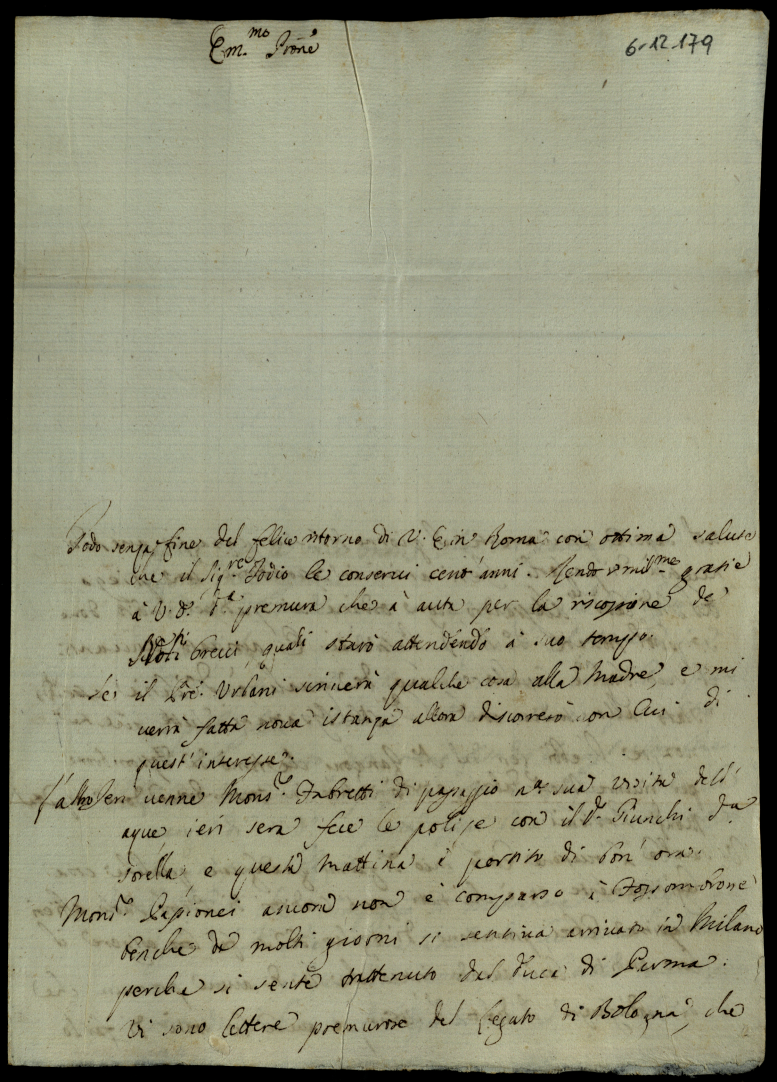 Em.mo Prone
6-12-179
Godo senza fine del felice ritorno di V. E. in Roma con ottima salute
che il Sig.re Iddio le conservi cent'anni. Rendo umil.me grazie
à V. E. premura che à auta per la riscosione de
Brecci, quali starò attendendo à suo tempo.
se il Pre. Urbani scriverà qualche cosa alla Madre, e mi
verrà fatta nova istanza allora discorerò con Lui di
quest'interesse.
L'altro ieri venne Mons.r Fabretti di passaggio sua visita dell'
aque, ieri sera fece le polize con il Sr. Giunchi da
sorella, e questa mattina è partito di bon' ora.
Mons.r Passionei ancora non è comparso à Fossombrone
benche da molti giorni si sentiva arrivato in Milano
perche si sente trattenuto dal Duca di Parma.
Vi sono lettere premurose del Legato di Bologna, che